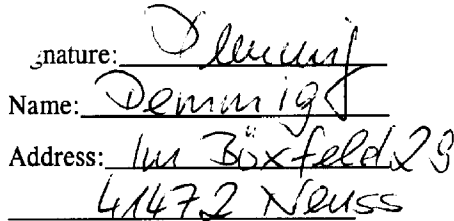 gnature: Demmig
Name: Demmig
Address: Im Böxfeld 29
41472 Neuss